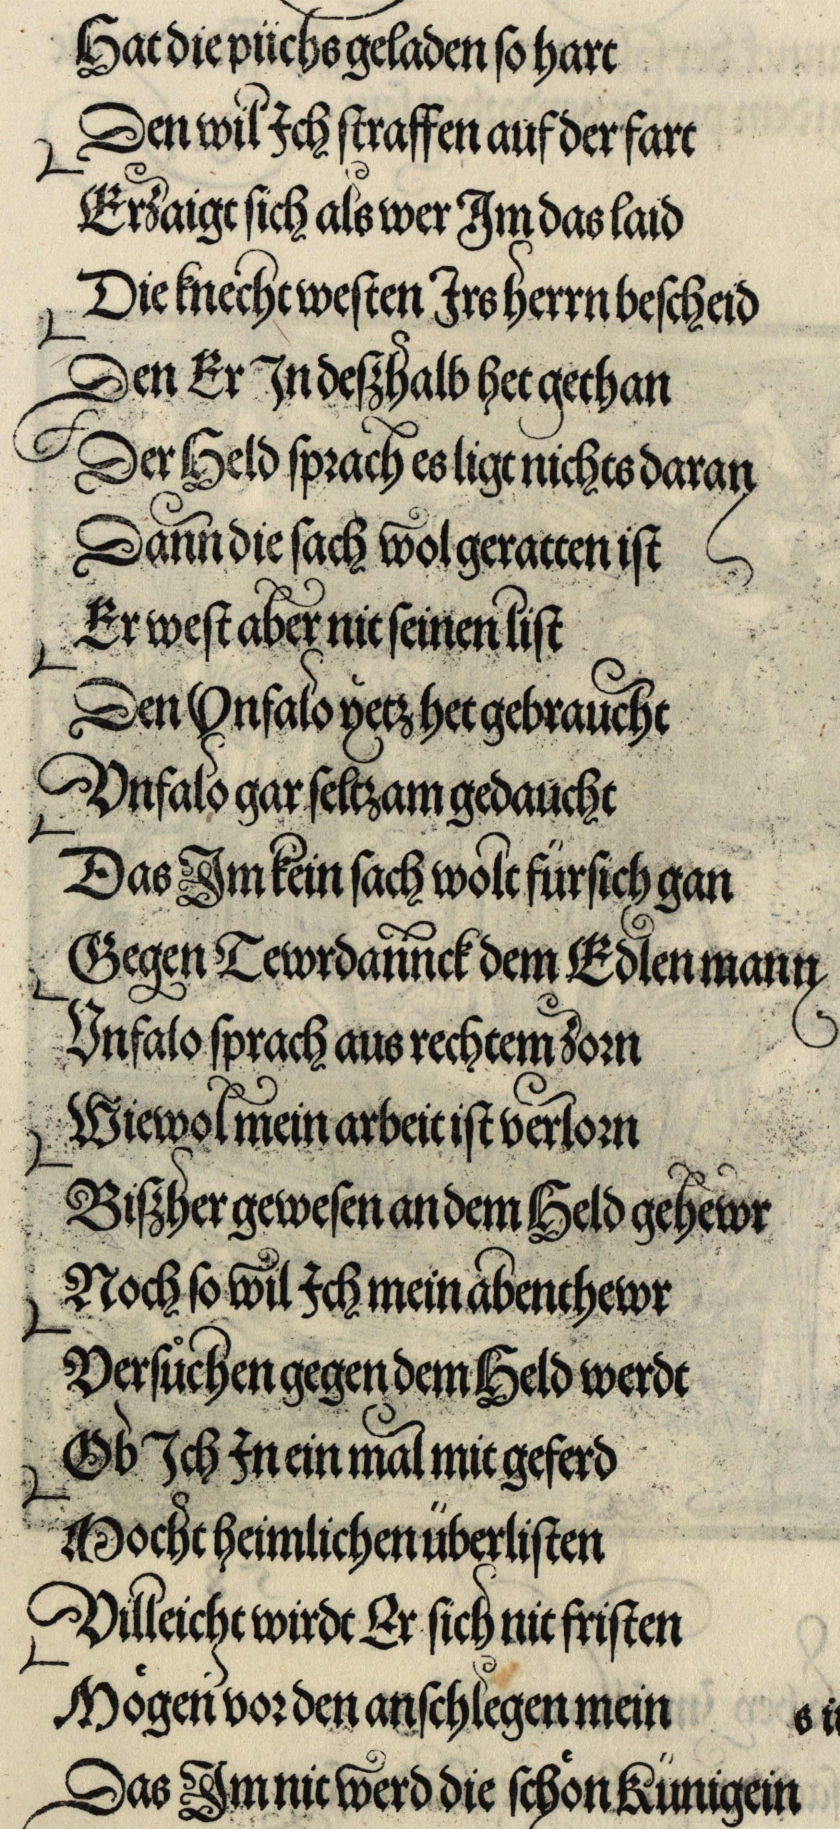 Hat die püchs geladen so hart
Den wil Ich straffen auf der fart
Erzaigt sich als wer Im das laid
Die knecht westen Irs herrn bescheid
Den Er In deßhalb het gethan
Der Held sprach es ligt nichts daran
Dann die sach wol geratten ist
Er west aber nit seinen list
Den Vnfalo yetz het gebraucht
Vnfalo gar seltzam gedaucht
Das Im kein sach wolt für sich gan
Gegen Tewrdannck dem Edlen mann
Vnfalo sprach aus rechtem zorn
Wiewol mein arbeit ist verlorn
Bißher gewesen an dem Held gehewr
Noch so wil Ich mein abenthewr
Versůchen gegen dem Held werdt
Ob Ich In ein mal mit geferd
Mocht heimlichen überlisten
Villeicht wirdt Er sich nit fristen
Mögen vor den anschlegen mein
Das Im nit werd die schön Künigein